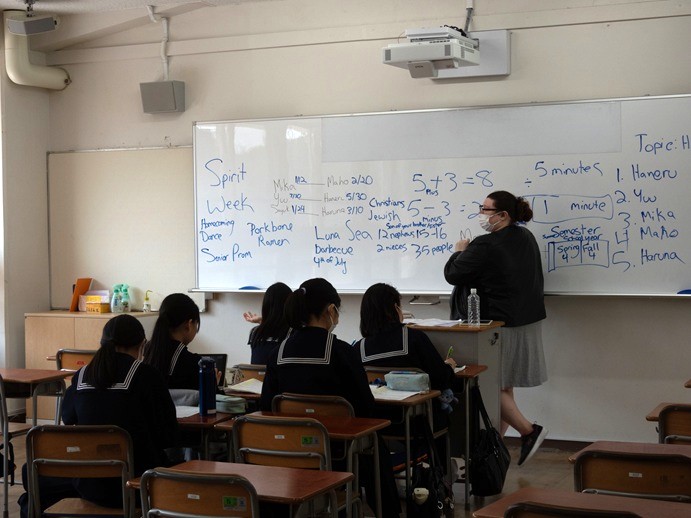 Spirit
Week
Homecoming
Dance
Senior Prom
Porkbone
Ramen
Mika 11/2 Maho 2/20
Yw 7/10 Haneru 5/30
1/24 Haruna 3/10
Luna Sea
Barbecue
4th of July
Christians
Jewish
12 nephews
2 nieces
5 + 3 = 8
Plus
5 - 3 = 2
minus
15-16
35 people
÷ 5 minutes
1 minute
Semester
Spring Fall
4 4
Topic: H
1. Haneru
2. Yw
3. Mika
4. Maho
5. Haruna